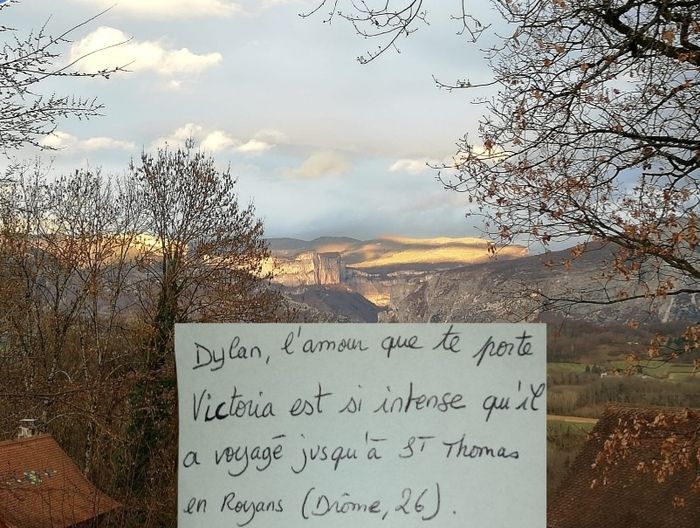 Dylan, l'amour que te porte
Victoria est si intense qu'il
a voyagé jusqu'à ST Thomas
en Royans (Drôme, 26).